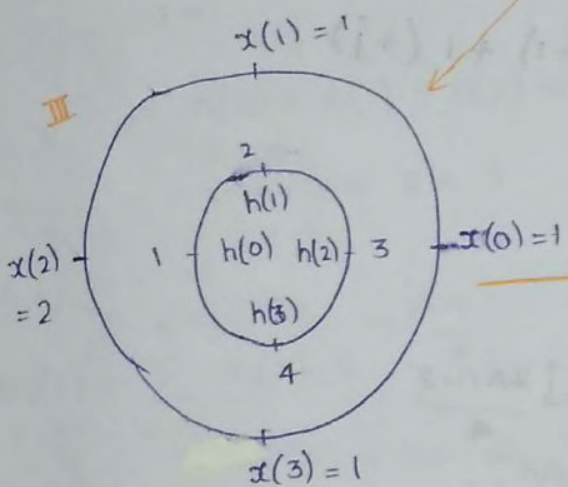 x(1) = 1
III
2
h(1)
x(2) = 2
1
h(0)
h(2)
3
x(0) = 1
h(3)
4
x(3) = 1